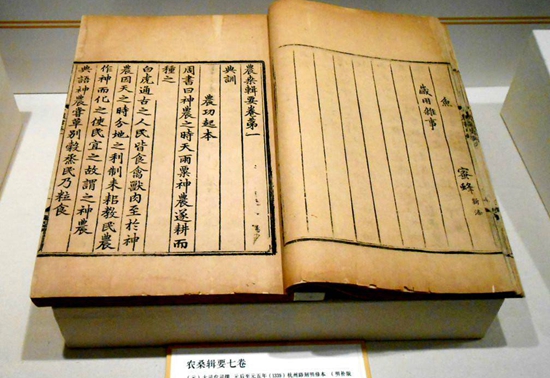 魚 蜜蜂 新添
歲用雜事
農桑輯要卷第一
典訓
農功起本
周書曰神農之時天雨粟神農遂耕而
種之
白虎通古之人民皆食禽獸肉至於神
農因天之時分地之利制耒耜教民農
作神而化之使民宜之故謂之神農
典語神農嘗草別穀烝民乃粒食
农桑辑要七卷
（元）大司农司撰 元后至元五年（1339）杭州路刻明修本